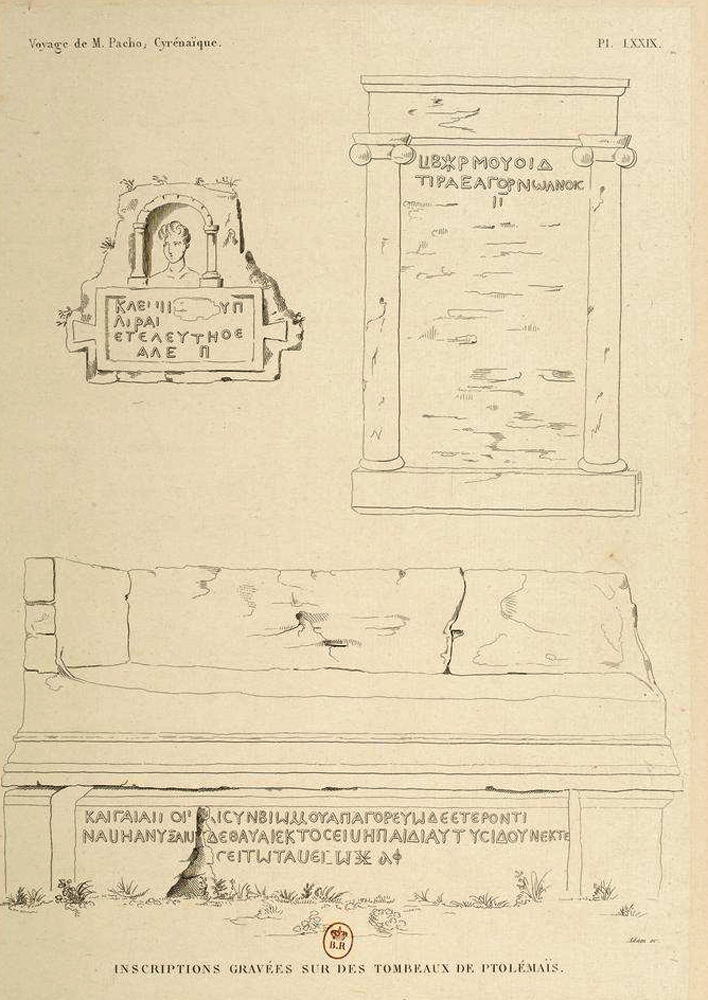 Voyage de M. Pacho, Cyrénaïque.
Pl. LXXIX.
ΚΛΕΙ ΥΠ
ΛΙΡΑΙ
ΕΤΕΛΕΥΤΗΟΕ
ΑΛΕ Π
ΡΜΟΥΟΙΔ
ΤΙΡΑΞΑΓΟΡΝωΛΝΟΙC
ΚΑΙΓΑΙΑΙΙ ΟΙ ΙCΥΝΒΙω ΟΥΑΠΑΓΟΡΕΥωΔΕΕΤΕΡΟΝΤΙ
ΔΕΘΑΥΑΙΕΚΤΟCΕΙ ΗΠΑΙΔΙΑΥΤ ΥCΙΔΟΥΝΕΚΤΕ
CΕΙΤωΤΑ
Adam sc.
B.R
INSCRIPTIONS GRAVÉES SUR DES TOMBEAUX DE PTOLÉMAÏS.